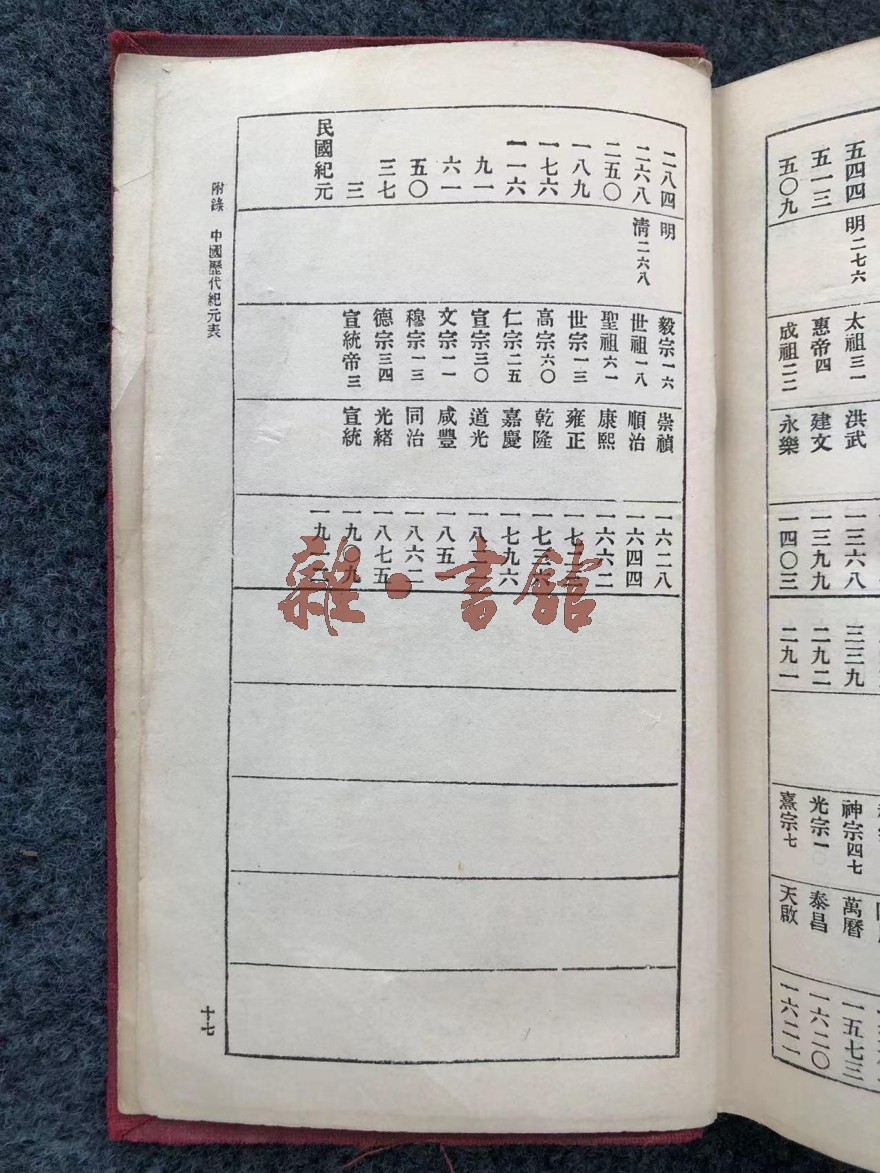 五四四 明二七六 太祖三一 洪武 一三六八
五一三 惠帝四 建文 一三九九
五〇九 成祖二二 永樂 一四〇三
三三九 神宗四七 萬曆 一五七三
二九二 光宗一 泰昌 一六二〇
二九一 熹宗七 天啟 一六二一
二八四 明 毅宗一六 崇禎 一六二八
二六八 清二六八 世祖一八 順治 一六四四
二五〇 聖祖六一 康熙 一六六二
一八九 世宗一三 雍正
一七六 高宗六〇 乾隆 一七三六
一一六 仁宗二五 嘉慶 一七九六
九一 宣宗三〇 道光
六一 文宗一一 咸豐
五〇 穆宗一三 同治 一八六二
三七 德宗三四 光緒 一八七五
三 宣統帝三 宣統 一九〇九
民國紀元 一九一二
附錄 中國歷代紀元表
十七
雜·書館